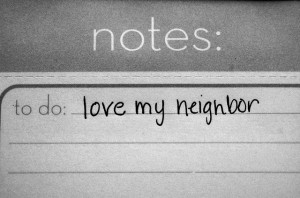 notes:
to do: love my neighbor